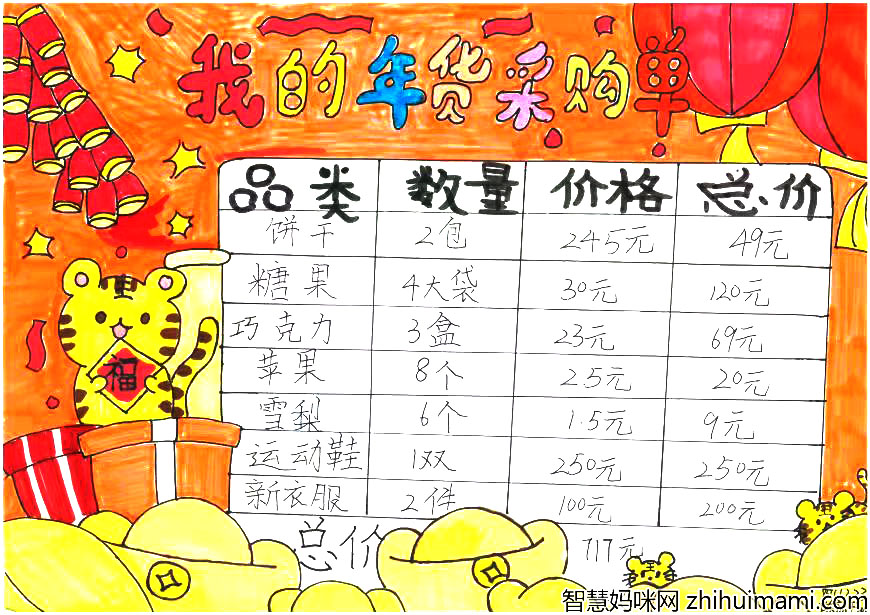 我的年货采购单
品类 数量 价格 总价
饼干 2包 24.5元 49元
糖果 4大袋 30元 120元
巧克力 3盒 23元 69元
苹果 8个 2.5元 20元
雪梨 6个 1.5元 9元
运动鞋 1双 250元 250元
新衣服 2件 100元 200元
总价 717元
福
智慧妈咪网 zhihuimami.com